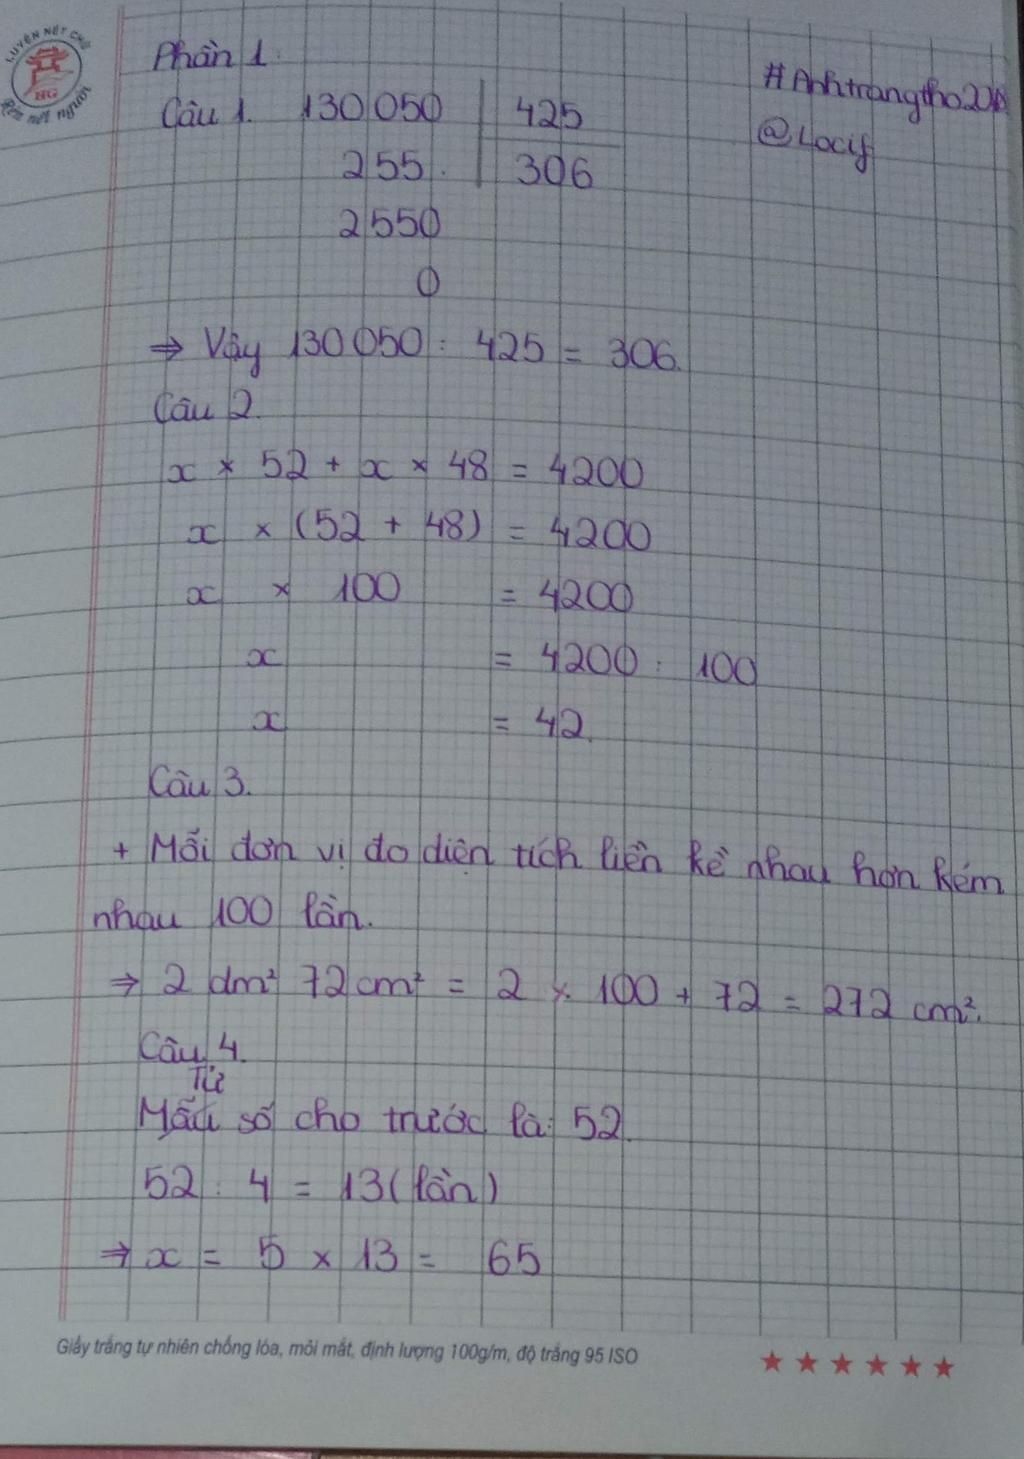 LUYỆN NÉT CHỮ
HG
Rèn nết người
Phần 1.
#Anhtrangtho20
@Locif
Câu 1. 130050 425
255. 306
2550
0
⇒ Vậy 130050 : 425 = 306.
Câu 2.
x × 52 + x × 48 = 4200
x × (52 + 48) = 4200
x × 100 = 4200
x = 4200 : 100
x = 42.
Câu 3.
+ Mỗi đơn vị đo diện tích liền kề nhau hơn kém
nhau 100 lần.
⇒ 2 dm² 72 cm² = 2 × 100 + 72 = 272 cm².
Câu 4.
Tử
Mẫu số cho trước là: 52.
52 : 4 = 13 (lần)
⇒ x = 5 × 13 = 65
Giấy trắng tự nhiên chống lóa, mỏi mắt, định lượng 100g/m, độ trắng 95 ISO